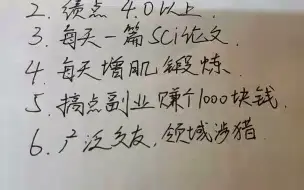 2. 绩点 4.0以上.
3. 每天一篇SCI论文.
4. 每天增肌锻炼.
5. 搞点副业赚个1000块钱.
6. 广泛交友,领域涉猎.